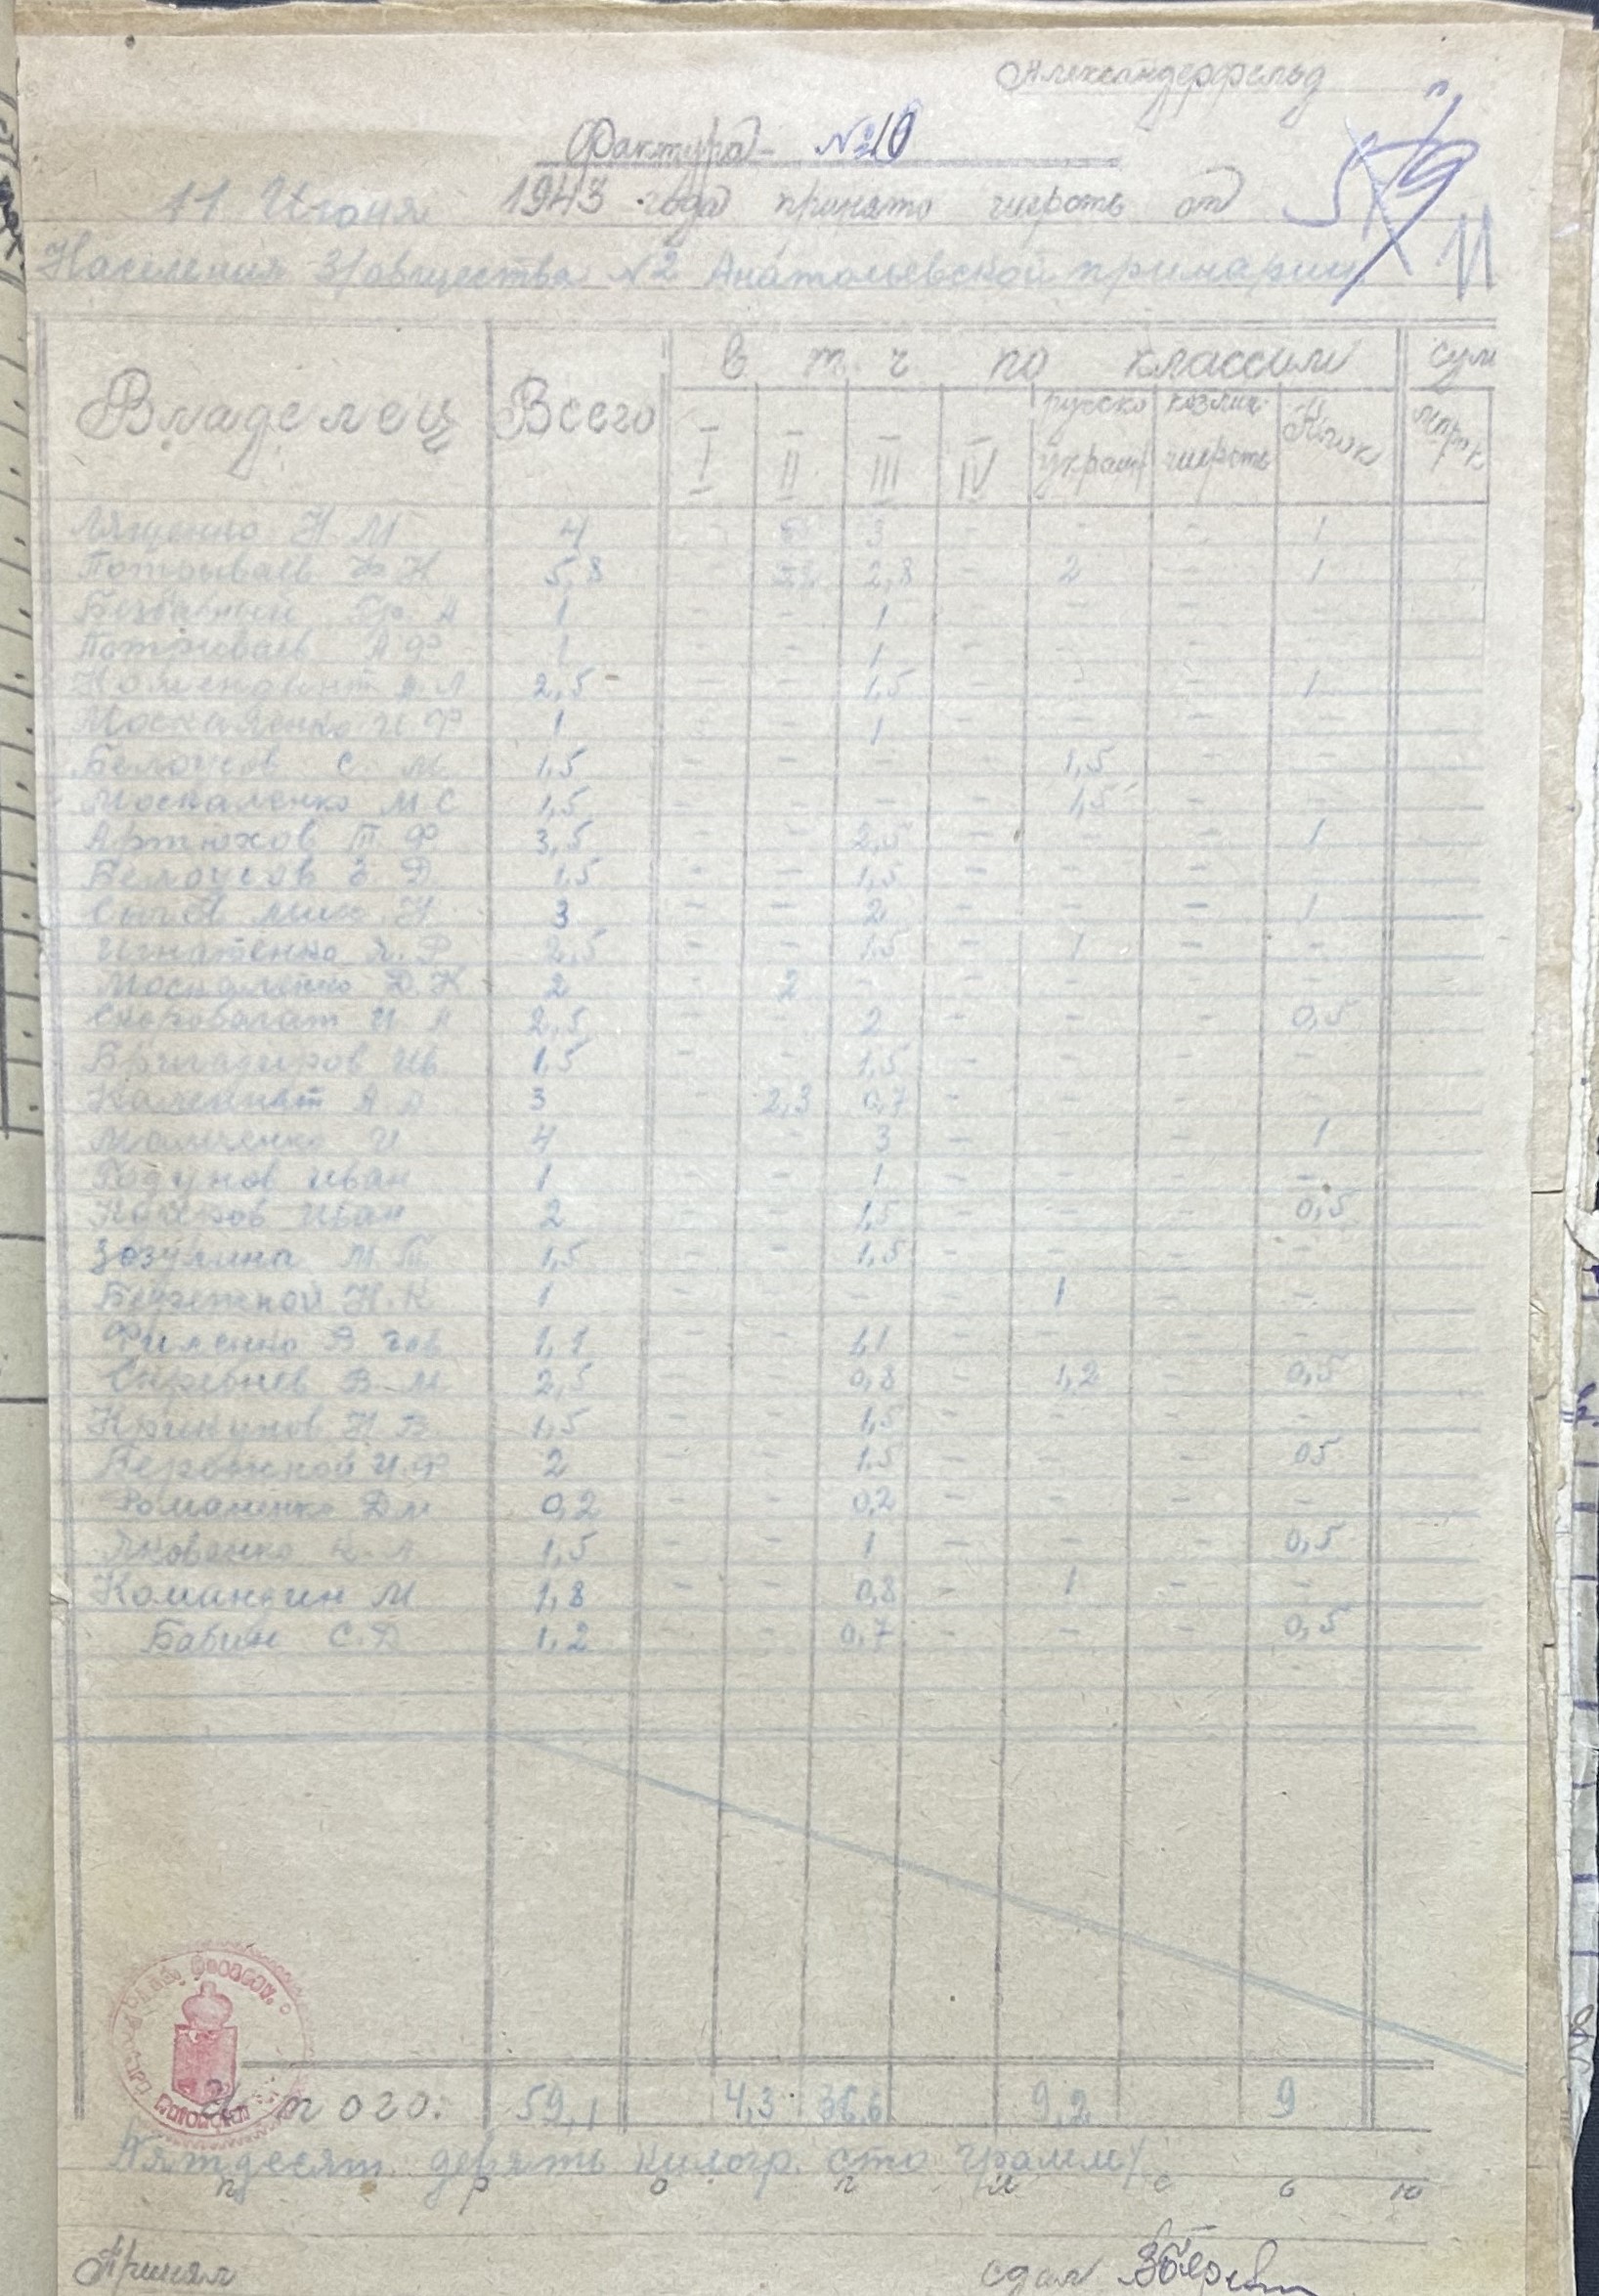 Александерфельд
Фактура №10
11 Июня 1943 года принято шерсть от
Населения З/общества №2 Анатольевской примарии
11
Владелец Всего в т. ч по классам сум
I II III IV русско украин козлин шерсть Клок
Лященко Н М 4 3 - - - 1
Потрываев Ф Н 5,8 2,8 - 2 - 1
Гр. А 1 - - 1 - - - -
Потрываев А Ф 1 - - 1 - - - -
Комендант А 2,5 - - 1,5 - - - 1
Москаленко И Ф 1 - - 1 - - - -
Белоусов С. М. 1,5 - - - - 1,5 - -
Москаленко М С 1,5 - - - - 1,5 - -
Артюхов П Ф 3,5 - - 2,5 - - - 1
Белоусов Д 1,5 - - 1,5 - - - -
Мих. Н 3 - - 2 - - - 1
Игнатенко Ф 2,5 - - 1,5 - 1 - -
Москаленко Д. К 2 - 2 - - - - -
Скоробагат И 2,5 - - 2 - - - 0,5
Бригадиров Ив 1,5 - - 1,5 - - - -
А А 3 - 2,3 0,7 - - - -
И 4 - - 3 - - - 1
Годунов Иван 1 - - 1 - - - -
Иван 2 - - 1,5 - - - 0,5
Зозулина М. П 1,5 - - 1,5 - - - -
Бережной Н. К 1 - - - - 1 - -
Филенко В 1,1 - - 1,1 - - - -
В М 2,5 - - 0,8 - 1,2 - 0,5
Крикунов Н В 1,5 - - 1,5 - - - -
Бережной И. Ф 2 - - 1.5 - - - 05
Романенко Дм 0,2 - - 0,2 - - - -
Яковенко 1,5 - - 1 - - - 0,5
Командин М 1,8 - - 0,8 - 1 - -
Бабин С. Д 1,2 - - 0,7 - - - 0,5
Итого: 59,1 4,3 36,6 9,2 9
Пятдесят девять килогр. сто грамм/
п р о п и с ю
Принял сдал